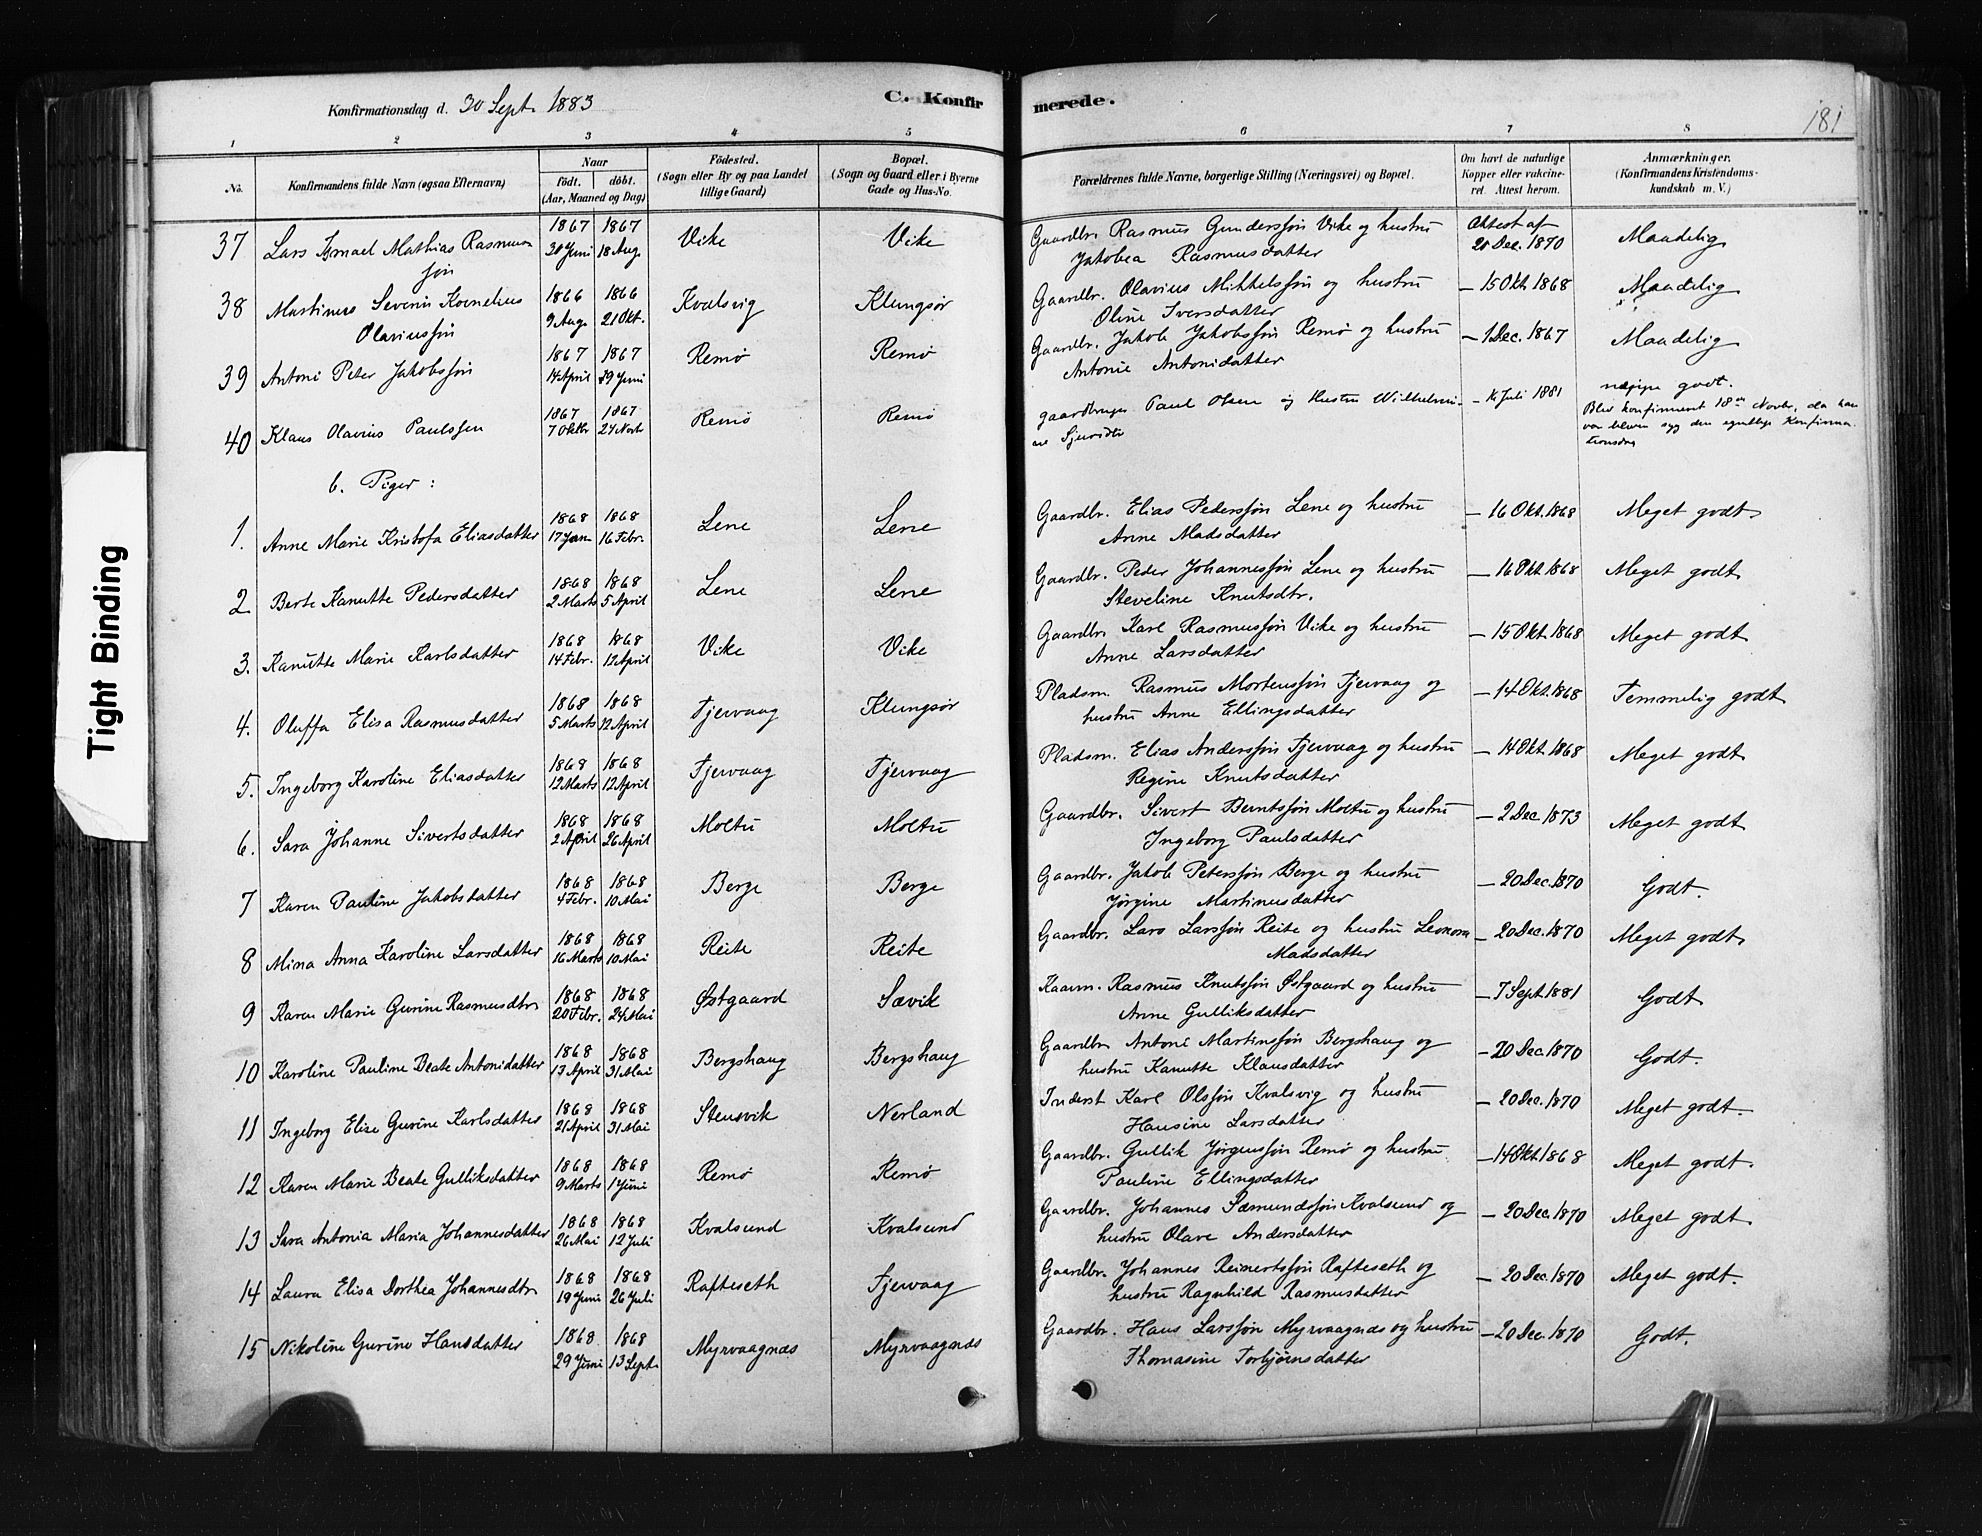 Konfirmationsdag d. 30 Sept. 1883
C. Konfirmerede.
181
1 2 3 4 5 6 7 8
No.
Konfirmandens fulde Navn (ogsaa Efternavn)
Naar
födt. döbt.
(Aar, Maaned og Dag)
Födested.
(Sogn eller By og paa Landet
tillige Gaard)
Bopæl.
(Sogn og Gaard eller i Byerne
Gade og Hus-No.
Forældrenes fulde Navne, borgerlige Stilling (Næringsvei) og Bopæl.
Om havt de naturlige
Kopper eller vakcine-
ret. Attest herom.
Anmærkninger.
(Konfirmandens Kristendoms-
kundskab m. V.)
37 Lars Ismael Mathias Rasmus
søn 1867 30 Juni 1867 18 Aug. Vike Vike Gaardbr. Rasmus Gunderssøn Vike og hustru
Jakobea Rasmusdatter Attest af
20 Dec. 1870 Maadelig
38 Martinus Severin Kornelius
Olaviussøn 1866 9 Aug. 1866 21 Okt. Kvalsvig Klungsør Gaardbr. Olavius Mikkelssøn og hustru
Oline Iversdatter — 15 Okt. 1868 Maadelig
39 Antoni Peter Jakobssøn 1867 14 April 1867 19 Juni Remø Remø Gaardbr. Jakob Jakobssøn Remø og hustru
Antonie Antonidatter — 1 Dec. 1867 Maadelig
40 Klaus Olavius Paulssen 1867 7 Oktbr 1867 24 Novb Remø Remø gaardbruger Paul Olsen og Hustru Wilhelmi-
ne Sjursdtr — Juli 1881 neppe godt.
Blev konfirmeret 18de Novbr, da han
var bleven syg den egentlige Konfirma-
tionsdag
b. Piger:
1. Anne Marie Kristofa Eliasdatter 1868 17 Jan 1868 16 Febr. Lene Lene Gaardbr. Elias Pederssøn Lene og hustru
Anne Madsdatter — 16 Okt. 1868 Meget godt
2 Berte Kanutte Pedersdatter 1868 2 Marts 1868 5 April Lene Lene Gaardbr. Peder Johannessøn Lene og hustru
Steveline Knutsdtr. — 16 Okt. 1868 Meget godt
3. Kanutte Marie Karlsdatter 1868 14 Febr. 1868 12 April Vike Vike Gaardbr. Karl Rasmussøn Vike og hustru
Anne Larsdatter — 15 Okt. 1868 Meget godt
4. Oluffa Elisa Rasmusdatter 1868 5 Marts 1868 12 April Tjervaag Klungsør Pladsm. Rasmus Mortenssøn Tjervaag og
hustru Anne Ellingsdatter — 14 Okt. 1868 Temmelig godt
5. Ingeborg Karoline Eliasdatter 1868 12 Marts 1868 12 April Tjervaag Tjervaag Pladsm. Elias Anderssøn Tjervaag og hustru
Regine Knutsdatter — 14 Okt. 1868 Meget godt
6. Sara Johanne Sivertsdatter 1868 2 April 1868 26 April Moltu Moltu Gaardbr. Sivert Berntssøn Moltu og hustru
Ingeborg Paulsdatter — 2 Dec. 1873 Meget godt
7 Karen Pauline Jakobsdatter 1868 4 Febr. 1868 10 Mai Berge Berge Gaardbr. Jakob Peterssøn Berge og hustru
Jørgine Martinusdatter — 20 Dec. 1870 Godt.
8 Mina Anna Karoline Larsdatter 1868 16 Marts 1868 10 Mai Reite Reite Gaardbr. Lars Larssøn Reite og hustru Leonora
Madsdatter — 20 Dec. 1870 Meget godt
9 Karen Marie Gurine Rasmusdtr 1868 20 Febr. 1868 24 Mai Østgaard Sævik Kaarm. Rasmus Knutssøn Østgaard og hustru
Anne Gulliksdatter — 7 Sept. 1881 Godt
10 Karoline Pauline Beate Antonidatter 1868 13 April 1868 31 Mai Bergshaug Bergshaug Gaardbr Antoni Martinssøn Bergshaug og
hustru Kanutte Klausdatter — 20 Dec. 1870 Godt.
11 Ingeborg Elise Gurine Karlsdatter 1868 21 April 1868 31 Mai Stensvik Nerland Inderst Karl Olssøn Kvalsvig og hustru
Hansine Larsdatter — 20 Dec. 1870 Meget godt.
12 Karen Marie Beate Gulliksdatter 1868 9 Marts 1868 1 Juni Remø Remø Gaardbr. Gullik Jørgenssøn Remø og hustru
Pauline Ellingsdatter — 14 Okt. 1868 Meget godt.
13 Sara Antonia Maria Johannesdatter 1868 26 Mai 1868 12 Juli Kvalsund Kvalsund Gaardbr. Johannes Sæmundssøn Kvalsund og
hustru Olave Andersdatter — 20 Dec. 1870 Meget godt.
14 Laura Elisa Dorthea Johannesdtr 1868 19 Juni 1868 26 Juli Rafteseth Tjervaag Gaardbr. Johannes Reinertssøn Rafteseth og
hustru Ragnhild Rasmusdatter — 20 Dec. 1870 Meget godt.
15 Nikoline Gurine Hansdatter 1868 29 Juni 1868 13 Sept. Myrvaagnæs Myrvaagnæs Gaardbr. Hans Larssøn Myrvaagnæs og hustru
Thomasine Torbjørnsdatter — 20 Dec. 1870 Godt.
Tight Binding